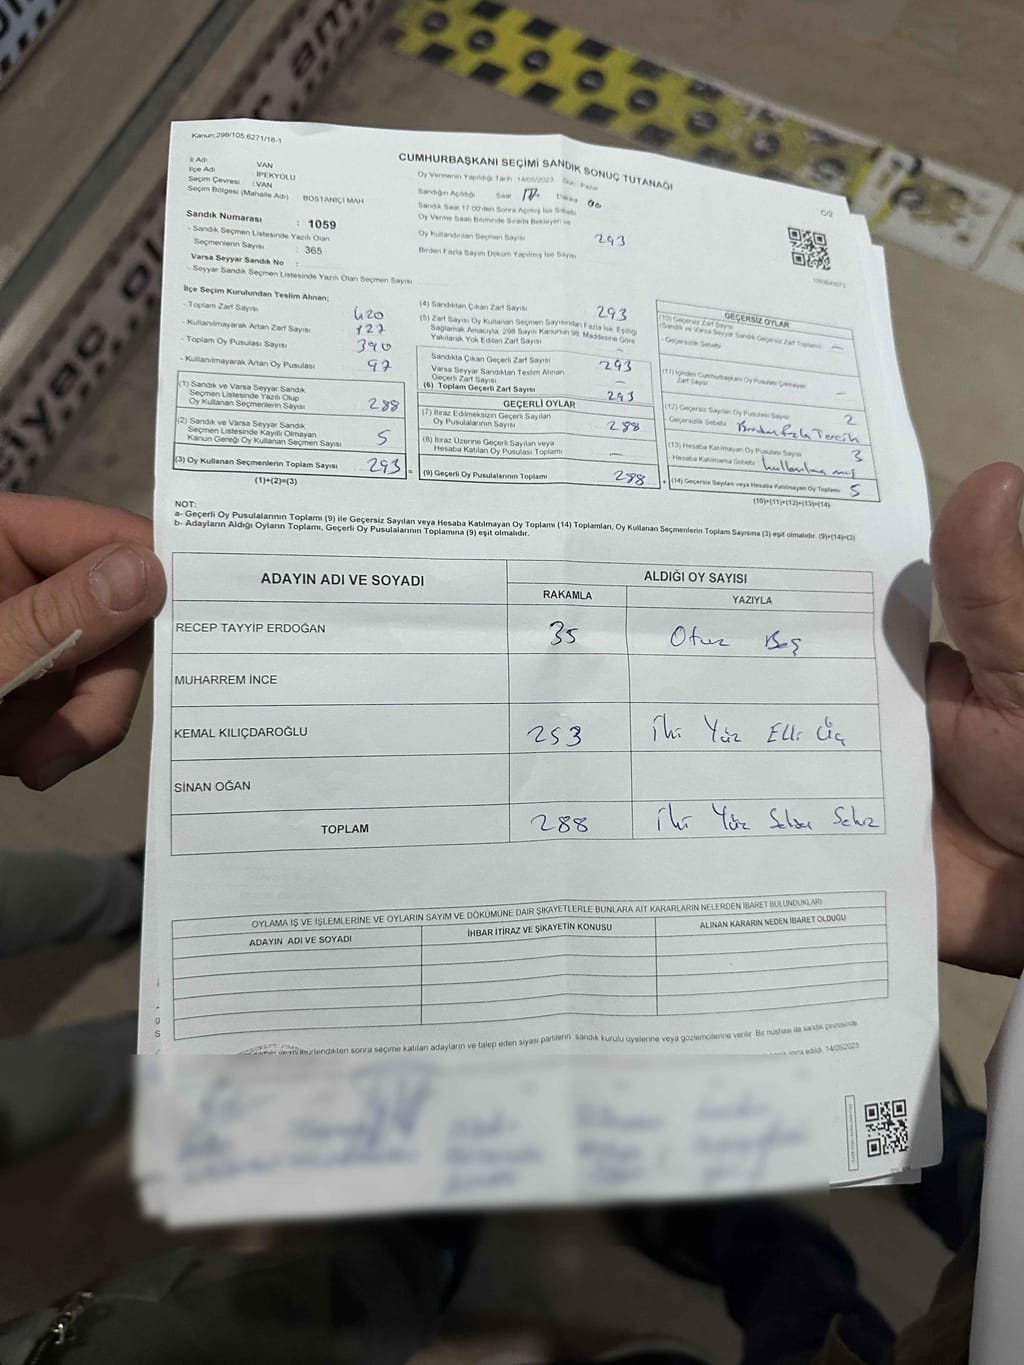 Kanun:298/105,6271/18-1
CUMHURBAŞKANI SEÇİMİ SANDIK SONUÇ TUTANAĞI
C/2
İl Adı VAN
İlçe Adı İPEKYOLU
Seçim Çevresi : VAN
Seçim Bölgesi (Mahalle Adı) BOSTANİÇİ MAH
Sandık Numarası : 1059
- Sandık Seçmen Listesinde Yazılı Olan
Seçmenlerin Sayısı : 365
Varsa Seyyar Sandık No :
- Seyyar Sandık Seçmen Listesinde Yazılı Olan Seçmen Sayısı
Oy Vermenin Yapıldığı Tarih 14/05/2023 Gün Pazar
Sandığın Açıldığı Saat 17 Dakika 00
Sandık Saat 17.00'den Sonra Açılmış İse Sebebi
Oy Verme Saati Bitiminde Sırada Bekleyen ve
Oy Kullandırılan Seçmen Sayısı 293
Birden Fazla Sayım Döküm Yapılmış İse Sayısı
İlçe Seçim Kurulundan Teslim Alınan;
- Toplam Zarf Sayısı 420
- Kullanılmayarak Artan Zarf Sayısı 127
- Toplam Oy Pusulası Sayısı 390
- Kullanılmayarak Artan Oy Pusulası 97
(1) Sandık ve Varsa Seyyar Sandık
Seçmen Listesinde Yazılı Olup
Oy Kullanan Seçmenlerin Sayısı 288
(2) Sandık ve Varsa Seyyar Sandık
Seçmen Listesinde Kayıtlı Olmayan
Kanun Gereği Oy Kullanan Seçmen Sayısı 5
(3) Oy Kullanan Seçmenlerin Toplam Sayısı 293 =
(1)+(2)=(3)
(4) Sandıktan Çıkan Zarf Sayısı 293
(5) Zarf Sayısı Oy Kullanan Seçmen Sayısından Fazla İse, Eşitliği
Sağlamak Amacıyla; 298 Sayılı Kanunun 98. Maddesine Göre
Yakılarak Yok Edilen Zarf Sayısı –
Sandıkta Çıkan Geçerli Zarf Sayısı 293
Varsa Seyyar Sandıktan Teslim Alınan
Geçerli Zarf Sayısı –
(6) Toplam Geçerli Zarf Sayısı 293
GEÇERLİ OYLAR
(7) İtiraz Edilmeksizin Geçerli Sayılan
Oy Pusulalarının Sayısı 288
(8) İtiraz Üzerine Geçerli Sayılan veya
Hesaba Katılan Oy Pusulası Toplamı –
(9) Geçerli Oy Pusulalarının Toplamı 288 +
GEÇERSİZ OYLAR
(10) Geçersiz Zarf Sayısı
(Sandık ve Varsa Seyyar Sandık Geçersiz Zarf Toplamı) –
- Geçersizlik Sebebi
(11) İçinden Cumhurbaşkanı Oy Pusulası Çıkmayan
Zarf Sayısı –
(12) Geçersiz Sayılan Oy Pusulası Sayısı 2
Geçersizlik Sebebi Birden fazla Tercih
(13) Hesaba Katılmayan Oy Pusulası Sayısı 3
Hesaba Katılmama Sebebi kullanılmamış
(14) Geçersiz Sayılan veya Hesaba Katılmayan Oy Toplamı 5
(10)+(11)+(12)+(13)=(14)
NOT:
a- Geçerli Oy Pusulalarının Toplamı (9) ile Geçersiz Sayılan veya Hesaba Katılmayan Oy Toplamı (14) Toplamları, Oy Kullanan Seçmenlerin Toplam Sayısına (3) eşit olmalıdır. (9)+(14)=(3)
b- Adayların Aldığı Oyların Toplamı, Geçerli Oy Pusulalarının Toplamına (9) eşit olmalıdır.
ADAYIN ADI VE SOYADI ALDIĞI OY SAYISI
RAKAMLA YAZIYLA
RECEP TAYYİP ERDOĞAN 35 Otuz Beş
MUHARREM İNCE
KEMAL KILIÇDAROĞLU 253 İki Yüz Elli Üç
SİNAN OĞAN
TOPLAM 288 İki Yüz Seksen Sekiz
OYLAMA İŞ VE İŞLEMLERİNE VE OYLARIN SAYIM VE DÖKÜMÜNE DAİR ŞİKAYETLERLE BUNLARA AİT KARARLARIN NELERDEN İBARET BULUNDUKLARI
ADAYIN ADI VE SOYADI İHBAR İTİRAZ VE ŞİKAYETİN KONUSU ALINAN KARARIN NEDEN İBARET OLDUĞU
sonra seçime katılan adayların ve talep eden siyasi partilerin sandık kurulu üyelerine veya gözlemcilerine verilir. Bir nüshası da sandık çevresinde
imza edildi. 14/05/2023